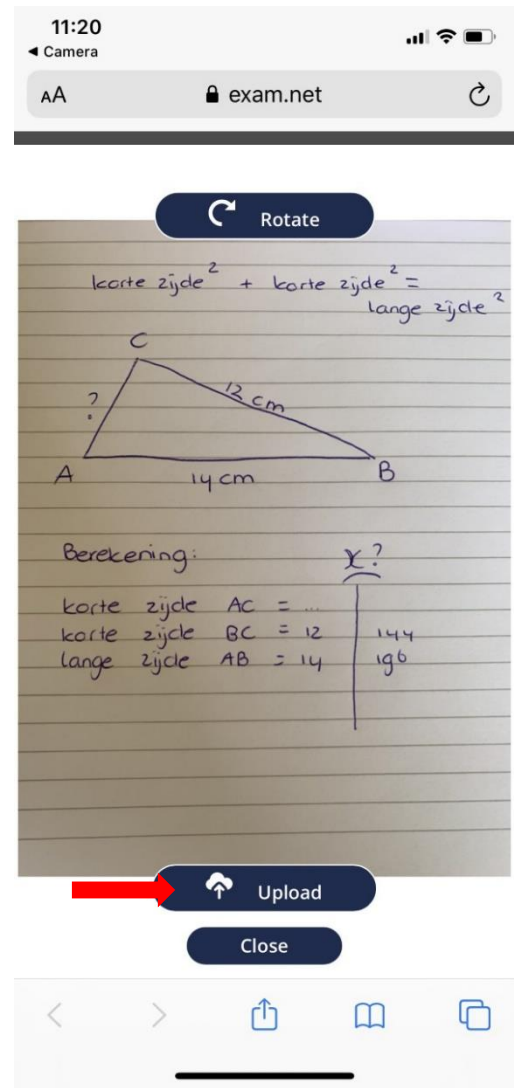 11:20
◀ Camera
AA exam.net
Rotate
korte zijde² + korte zijde² =
lange zijde²
C
?
12 cm
A
14 cm
B
Berekening: x?
korte zijde AC = ...
korte zijde BC = 12 144
lange zijde AB = 14 196
Upload
Close